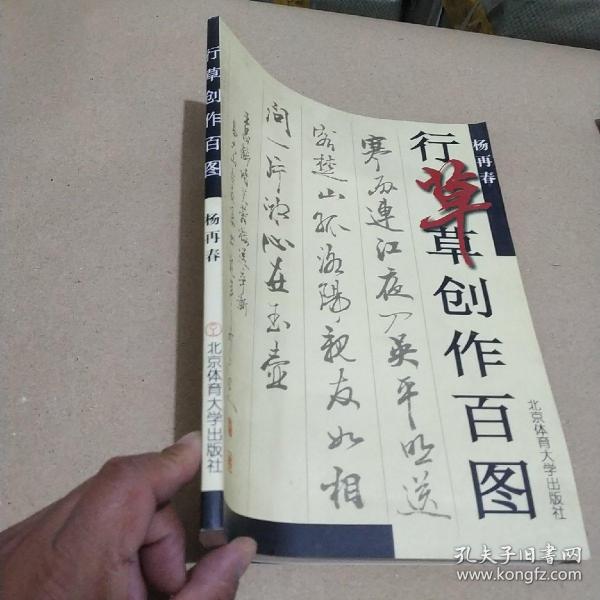 行草创作百图
杨再春
北京体育大学出版社
杨再春
行草创作百图
草
北京体育大学出版社
寒雨連江夜入吴平明送
客楚山孤洛陽親友如相
问一片冰心在玉壶
王昌龄诗芙蓉楼送辛渐
孔夫子旧书网
www.kongfz.com